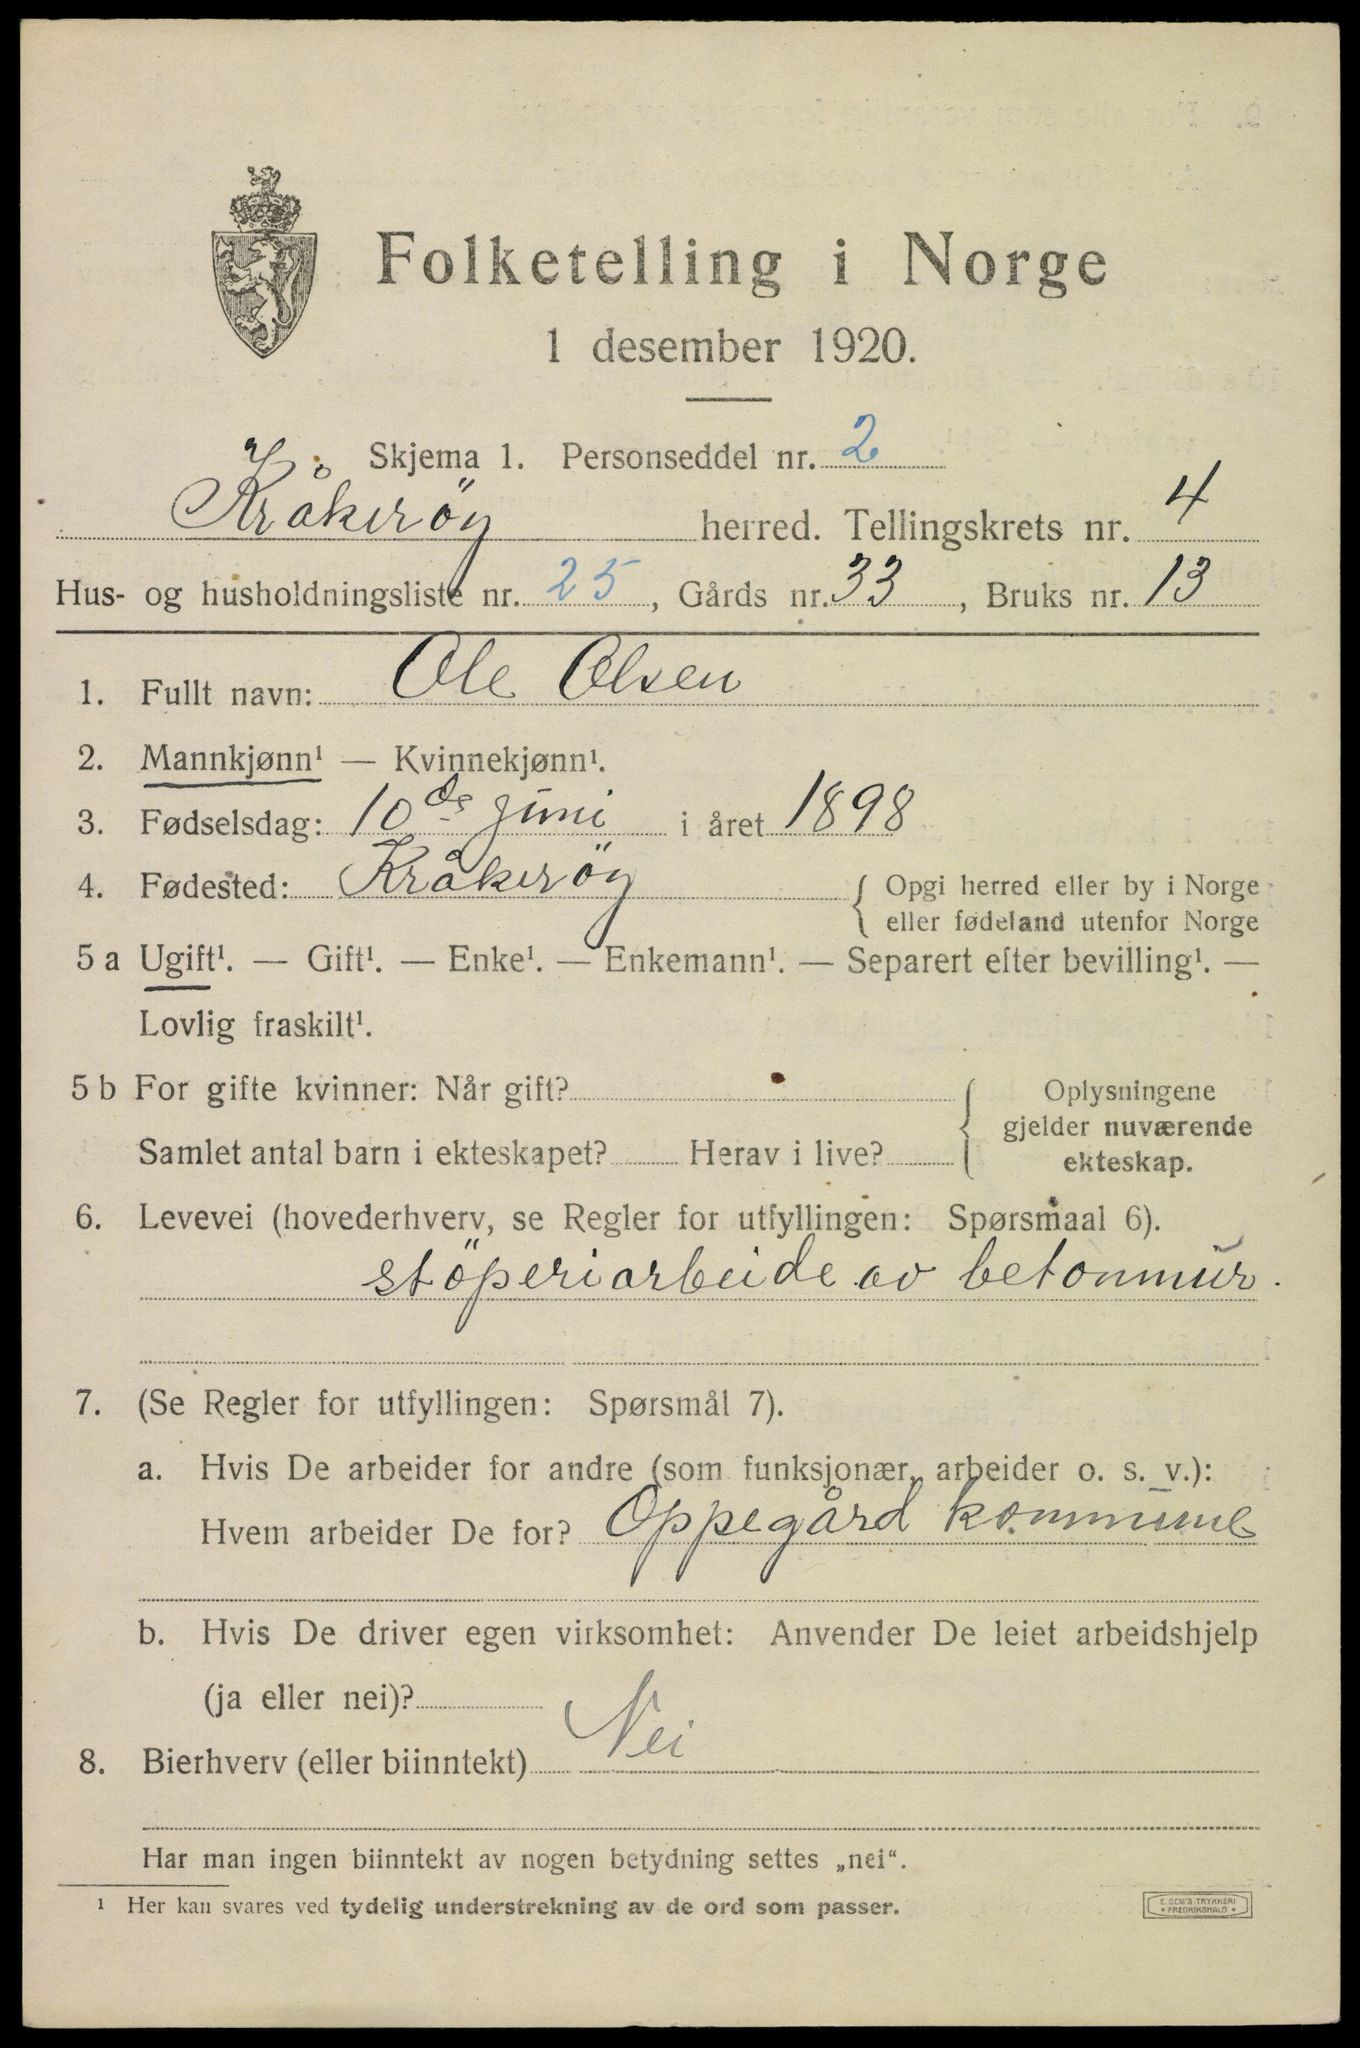 Folketelling i Norge
1 desember 1920.
Skjema 1. Personseddel nr. 2
Kråkeröy herred. Tellingskrets nr. 4
Hus- og husholdningsliste nr. 25, Gårds nr. 33, Bruks nr. 13
1. Fullt navn: Ole Olsen
2. Mannkjønn¹ — Kvinnekjønn¹.
3. Fødselsdag: 10de juni i året 1898
4. Fødested: Kråkeröy { Opgi herred eller by i Norge
eller fødeland utenfor Norge
5 a Ugift¹. — Gift¹. — Enke¹. — Enkemann¹. — Separert efter bevilling¹. —
Lovlig fraskilt¹.
5 b For gifte kvinner: Når gift? { Oplysningene
gjelder nuværende
Samlet antal barn i ekteskapet? Herav i live? ekteskap.
6. Levevei (hovederhverv, se Regler for utfyllingen: Spørsmaal 6).
stöperiarbeide av betonmur.
7. (Se Regler for utfyllingen: Spørsmål 7).
a. Hvis De arbeider for andre (som funksjonær, arbeider o. s. v.):
Hvem arbeider De for? Oppegård kommune
b. Hvis De driver egen virksomhet: Anvender De leiet arbeidshjelp
(ja eller nei)?
8. Bierhverv (eller biinntekt) Nei
Har man ingen biinntekt av nogen betydning settes „nei“.
¹ Her kan svares ved tydelig understrekning av de ord som passer.
E. SEM'S TRYKKERI
• FREDRIKSHALD •